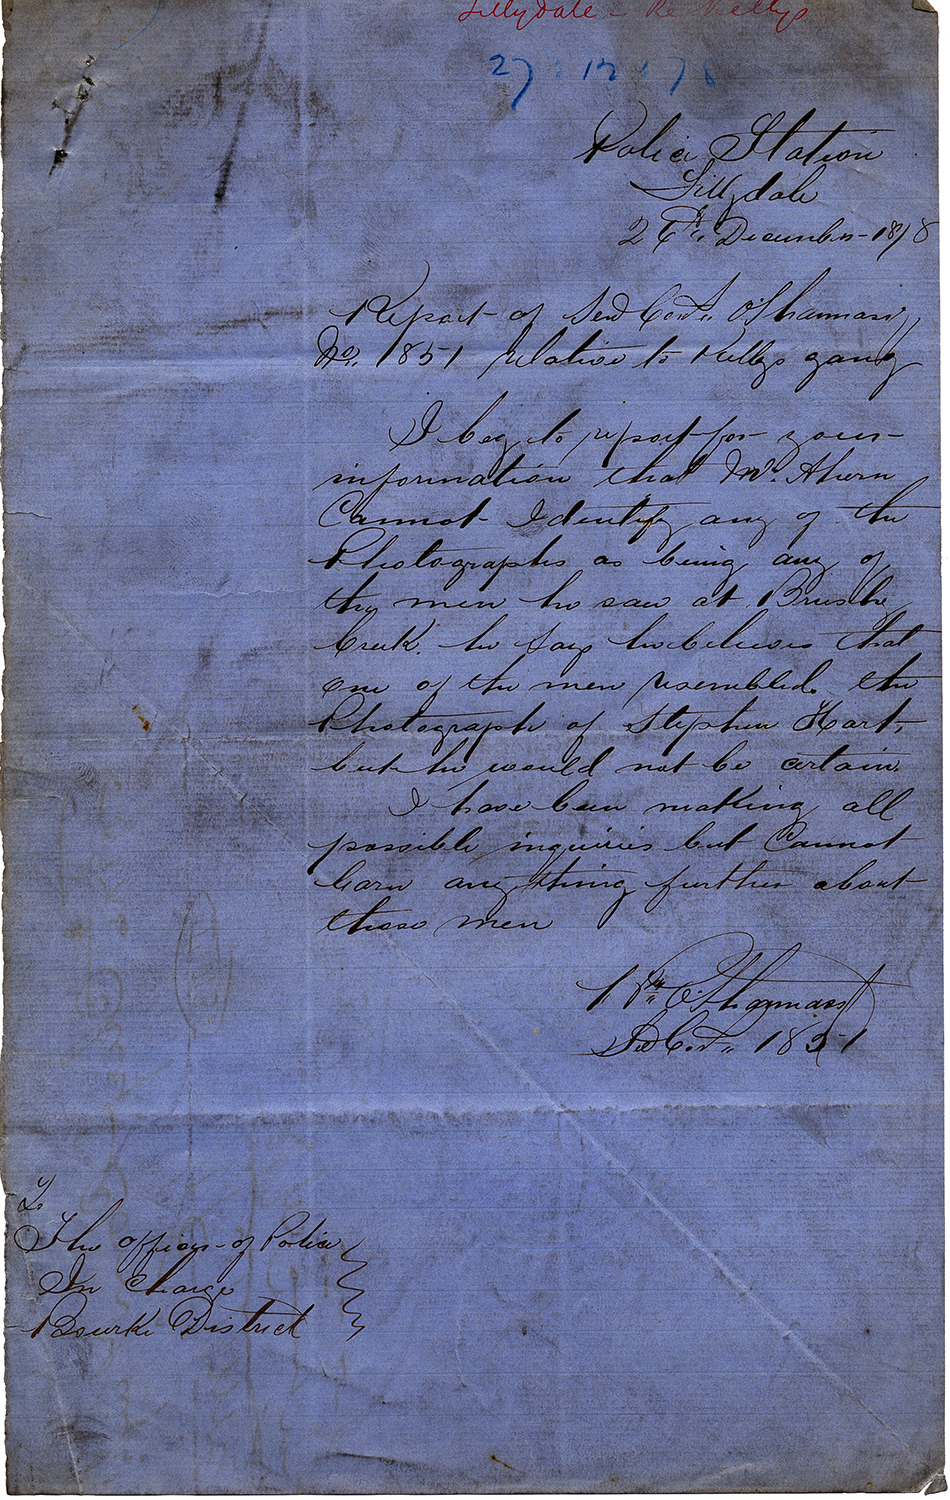 Lillydale - Re Kellys
27 : 12 : 78
Police Station
Lillydale
26th December 1878
Report of Sen Const. O'Shannassy
No. 1851 relative to Kellys gang
I beg to report for your
information that Mr. Ahern
Cannot Identify any of the
Photographs as being any of
the men he saw at Brushy
Creek. he says he believes that
one of the men resembled the
Photograph of Stephen Hart,
but he would not be certain.
I have been making all
possible inquiries but Cannot
learn any thing further about
those men
Sen Const. 1851
To
The officer of Police
In Charge
Bourke District